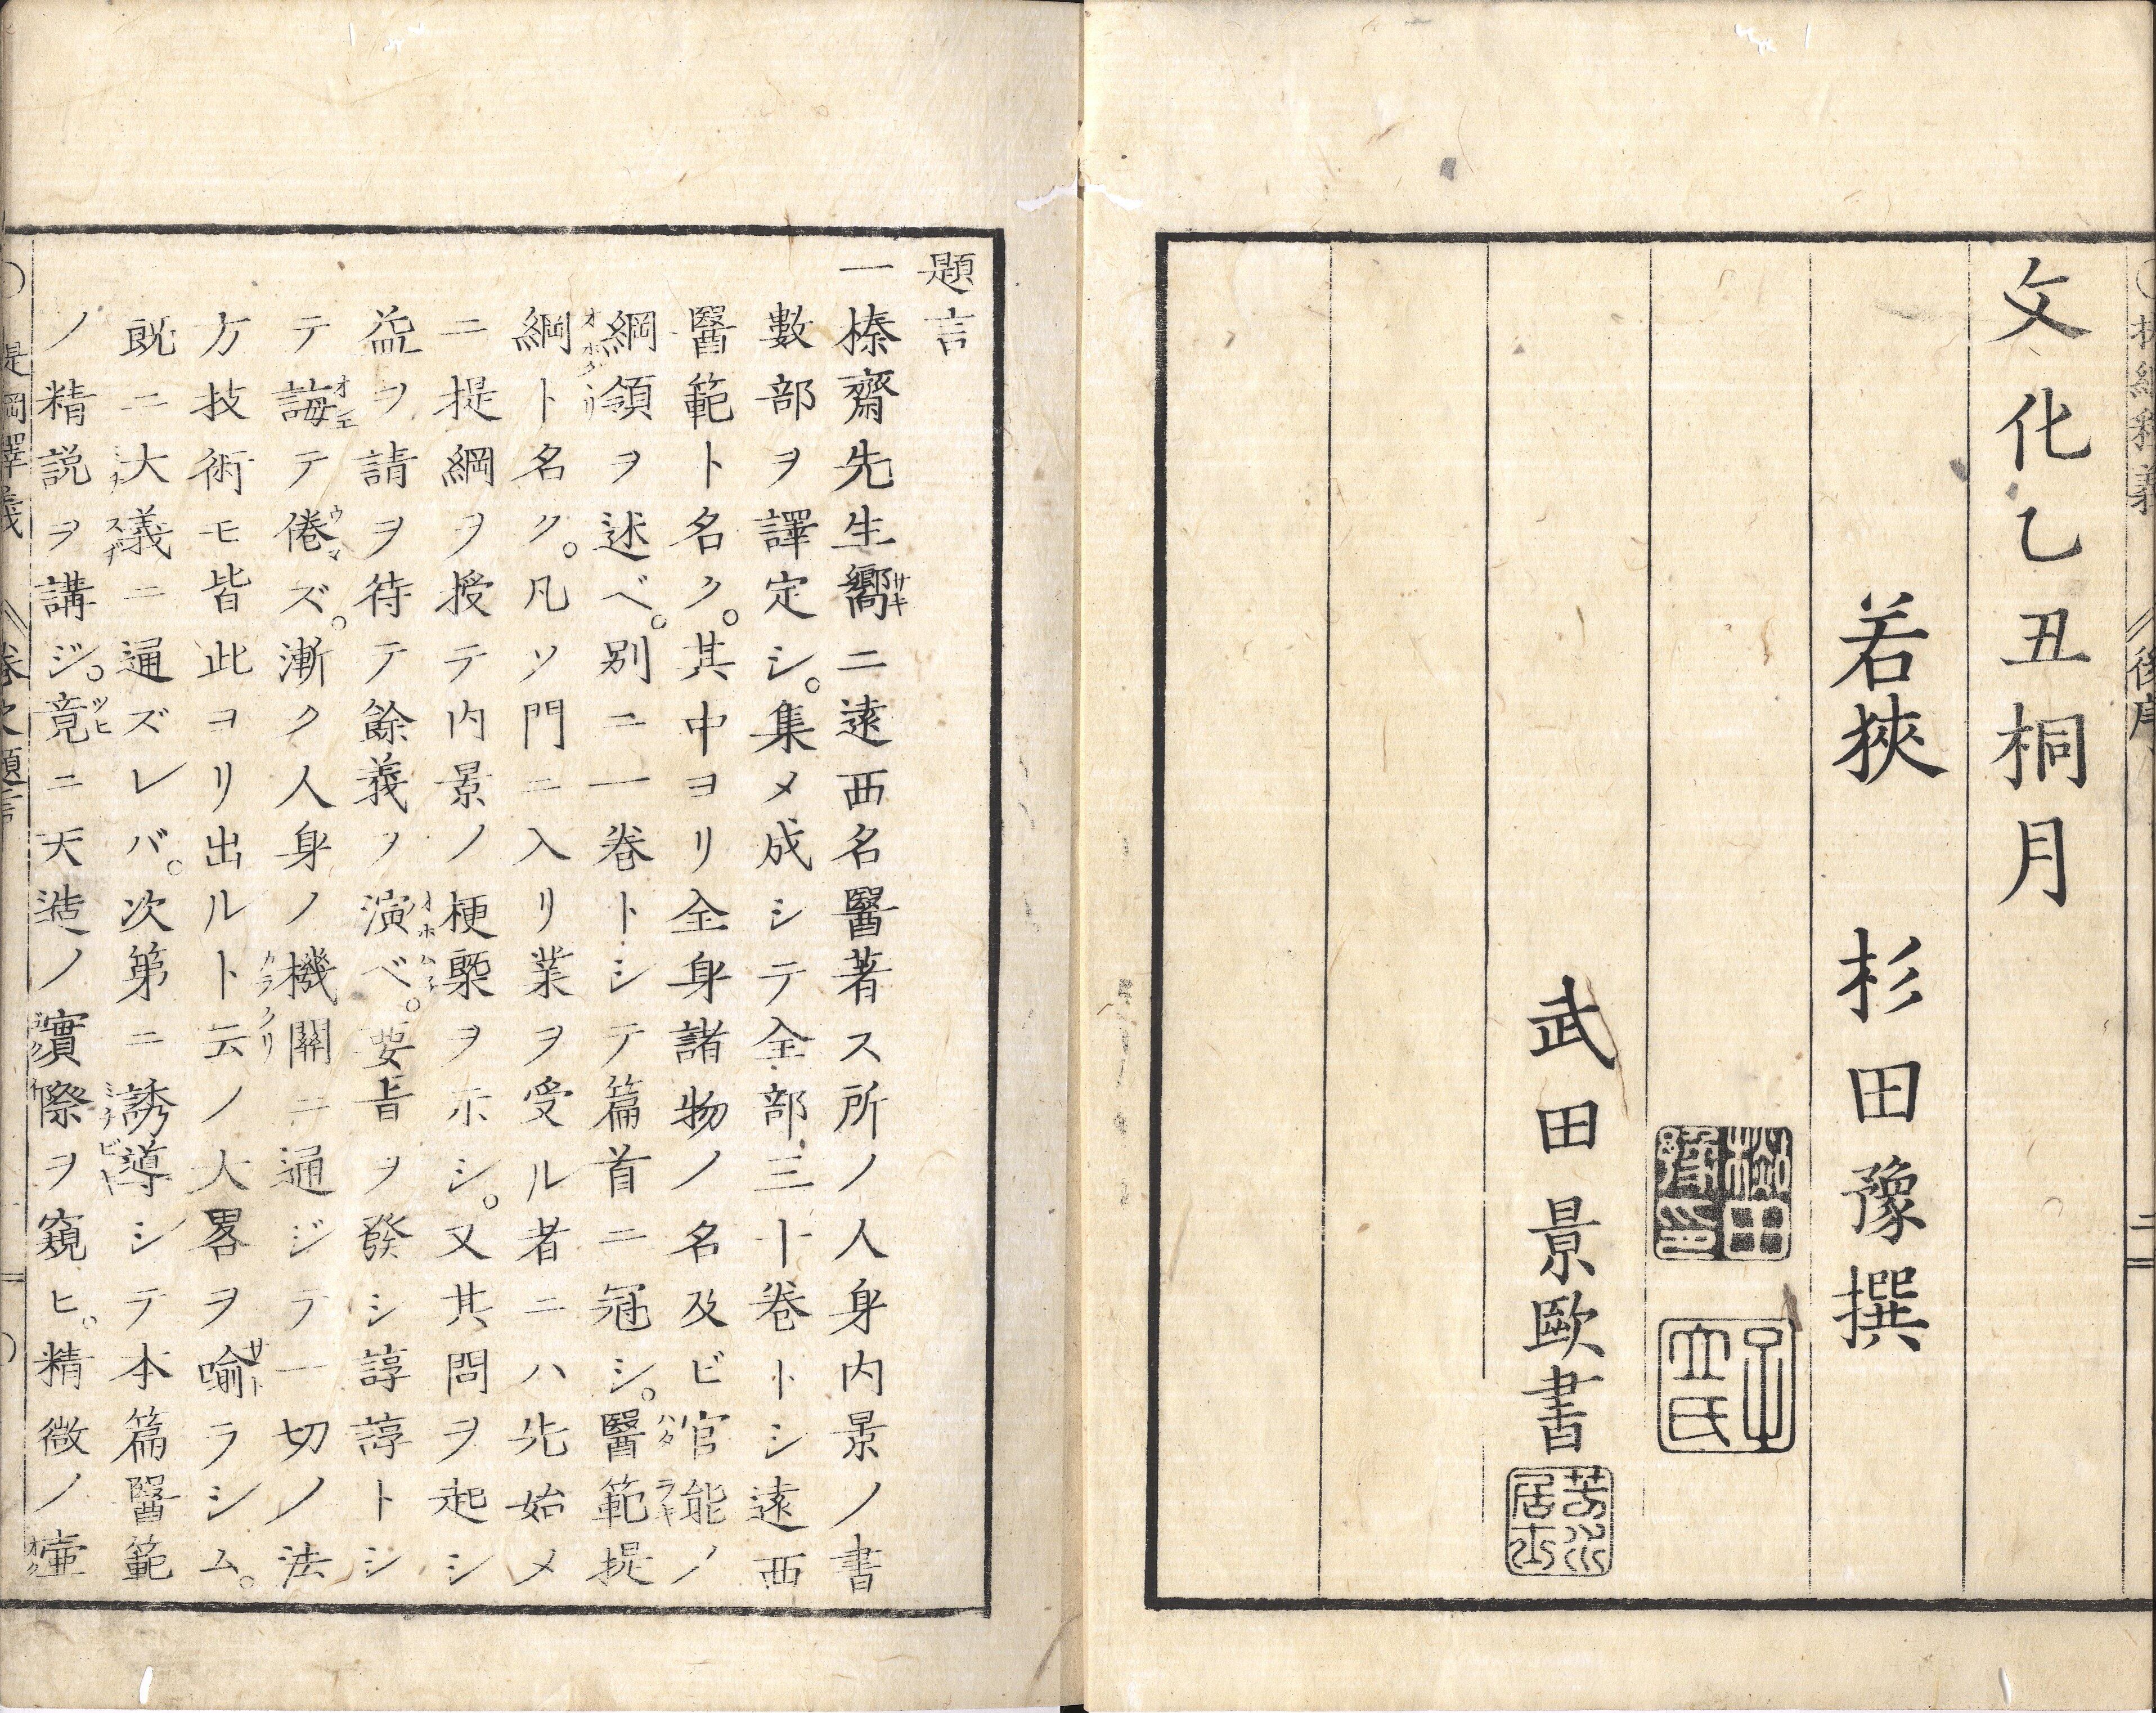 文化乙丑桐月
若狹 杉田豫撰
杉田豫印
子立氏
武田景歐書
題言
一榛齋先生嚮ニ遠西名醫著ス所ノ人身内景ノ書
サキ
數部ヲ譯定シ。集メ成シテ全部三十巻トシ遠西
醫範ト名ク。其中ヨリ全身諸物ノ名及ビ官能ノ
ハタラキ
綱領ヲ述ベ。別ニ一巻トシテ篇首ニ冠シ。醫範提
綱ト名ク。凡ソ門ニ入リ業ヲ受ル者ニハ先始メ
ニ提綱ヲ授テ内景ノ梗槩ヲ示シ。又其問ヲ起シ
オホムネ
益ヲ請ヲ待テ餘義ヲ演ベ。要旨ヲ發シ諄諄トシ
テ誨テ倦ズ。漸ク人身ノ機關ニ通ジテ一切ノ法
オエ
ウマ
カラクリ
方技術モ皆此ヨリ出ルト云ノ大畧ヲ喩ラシム。
サト
既ニ大義ニ通ズレバ。次第ニ誘導シテ本篇醫範
ミチビキ
ノ精説ヲ講ジ。竟ニ天造ノ實際ヲ窺ヒ。精微ノ壷
ツヒ
提綱釋義 巻之 題言 一